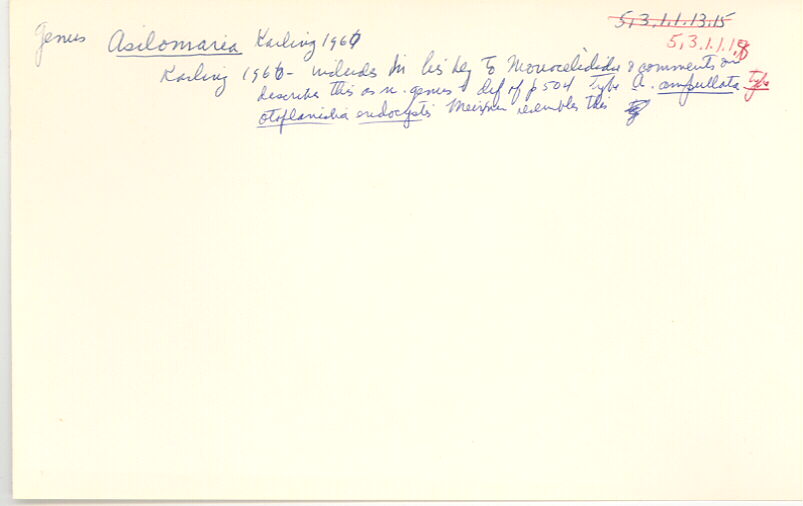 5,3,1,1,13,15
Genus Asilomaria Karling 1966
5,3,1,1,18
Karling 1966 - includes in his key to Monocelididae & comments on
describes this as n. genus & def of p 504 type A. ampullata type
otoplanidia endocystis Meixner resembles this